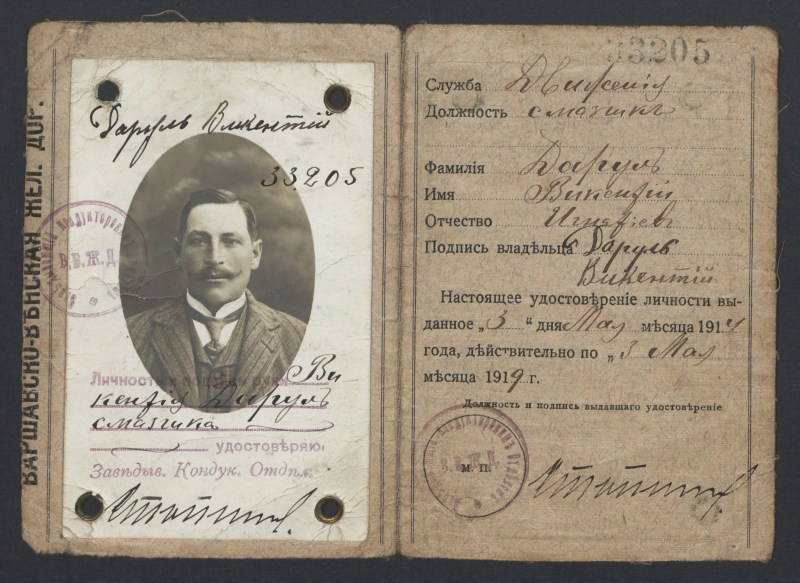 ВАРШАВСКО-ВѢНСКАЯ ЖЕЛ. ДОР.
Даруль Викентій
33205
В.В.Ж.Д.
Личность и подпись руки Ви
кентія Даруль
смазчика
удостовѣряю
Завѣдыв. Кондук. Отдѣл.
33205
Служба Движенія
Должность смазчикъ
Фамилія Даруль
Имя Викентій
Отчество
Подпись владѣльца Даруль
Викентій
Настоящее удостовѣреніе личности вы-
данное „3 “ дня Мая мѣсяца 1914
года, дѣйствительно по „3 Мая
мѣсяца 1919 г.
Должность и подпись выдавшаго удостовѣреніе
В.В.Ж.Д.
м. п.